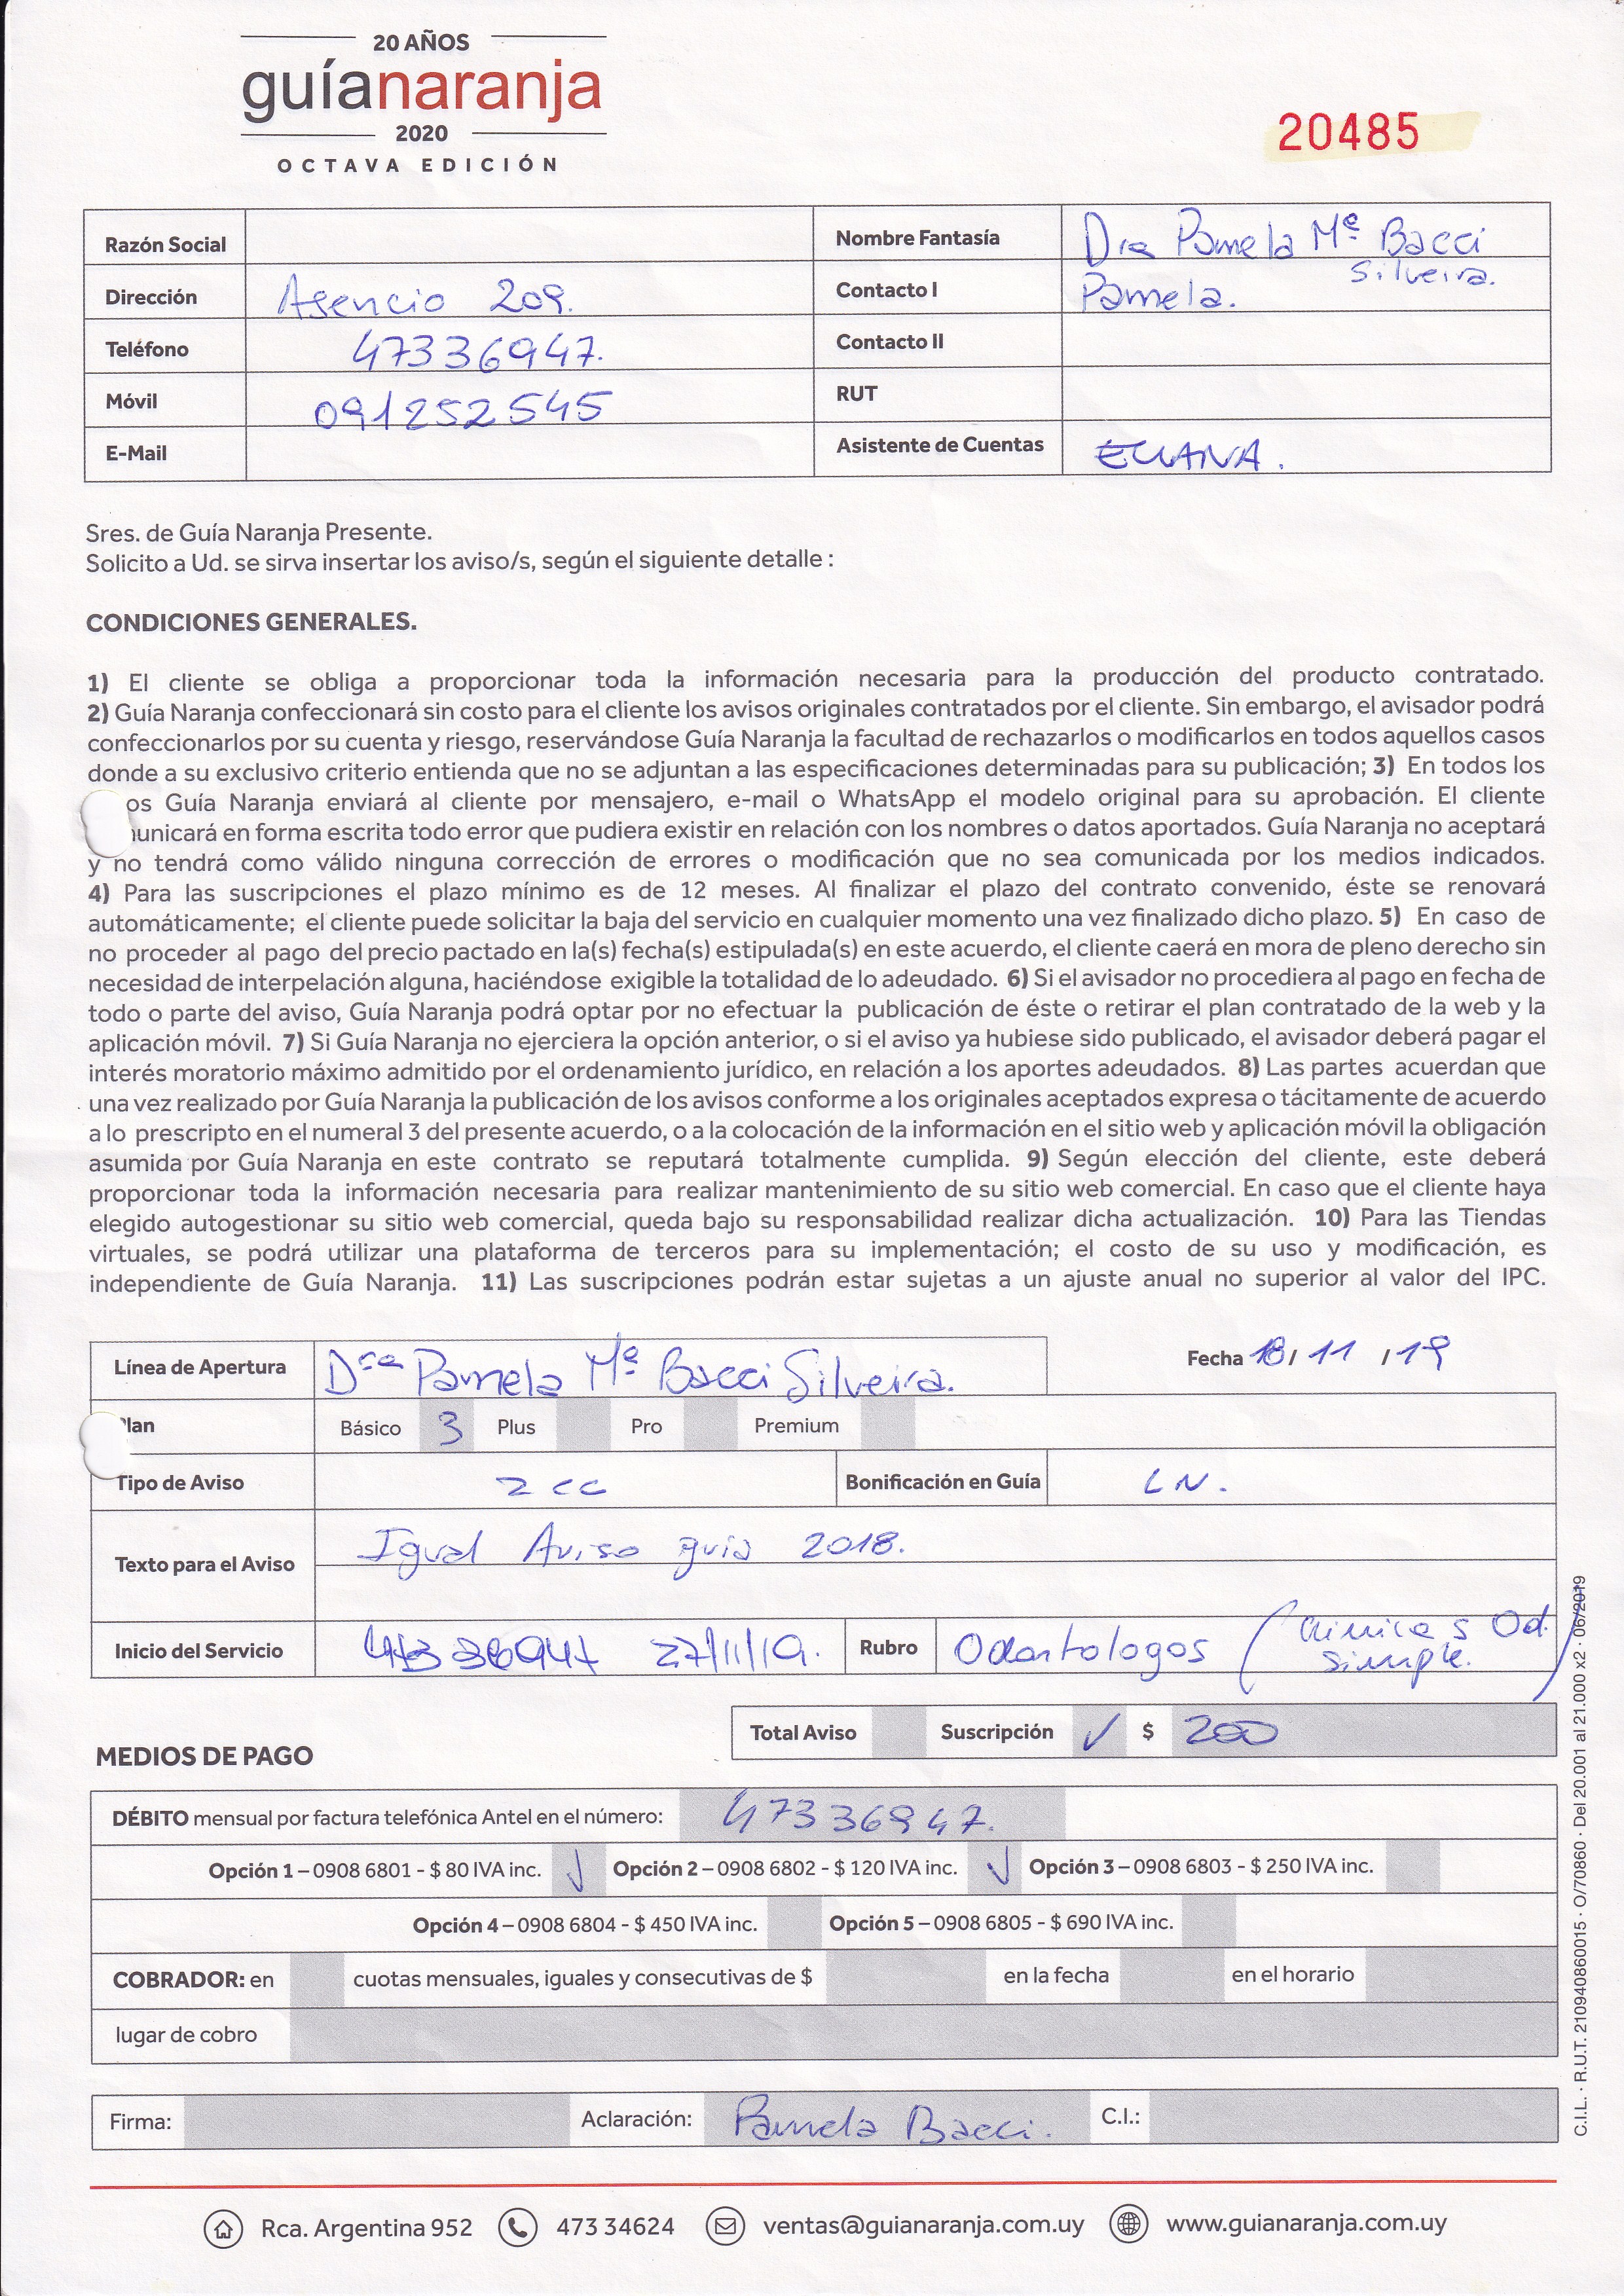 20 AÑOS
guíanaranja
2020
OCTAVA EDICIÓN
20485
Razón Social
Nombre Fantasía Dra Pamela Mª Bacci Silveira.
Dirección Asencio 209.
Contacto I Pamela.
Teléfono 47336947.
Contacto II
Móvil 091252545
RUT
E-Mail
Asistente de Cuentas ELIANA.
Sres. de Guía Naranja Presente.
Solicito a Ud. se sirva insertar los aviso/s, según el siguiente detalle :
CONDICIONES GENERALES.
1) El cliente se obliga a proporcionar toda la información necesaria para la producción del producto contratado.
2) Guía Naranja confeccionará sin costo para el cliente los avisos originales contratados por el cliente. Sin embargo, el avisador podrá
confeccionarlos por su cuenta y riesgo, reservándose Guía Naranja la facultad de rechazarlos o modificarlos en todos aquellos casos
donde a su exclusivo criterio entienda que no se adjuntan a las especificaciones determinadas para su publicación; 3) En todos los
os Guía Naranja enviará al cliente por mensajero, e-mail o WhatsApp el modelo original para su aprobación. El cliente
unicará en forma escrita todo error que pudiera existir en relación con los nombres o datos aportados. Guía Naranja no aceptará
y no tendrá como válido ninguna corrección de errores o modificación que no sea comunicada por los medios indicados.
4) Para las suscripciones el plazo mínimo es de 12 meses. Al finalizar el plazo del contrato convenido, éste se renovará
automáticamente; el cliente puede solicitar la baja del servicio en cualquier momento una vez finalizado dicho plazo. 5) En caso de
no proceder al pago del precio pactado en la(s) fecha(s) estipulada(s) en este acuerdo, el cliente caerá en mora de pleno derecho sin
necesidad de interpelación alguna, haciéndose exigible la totalidad de lo adeudado. 6) Si el avisador no procediera al pago en fecha de
todo o parte del aviso, Guía Naranja podrá optar por no efectuar la publicación de éste o retirar el plan contratado de la web y la
aplicación móvil. 7) Si Guía Naranja no ejerciera la opción anterior, o si el aviso ya hubiese sido publicado, el avisador deberá pagar el
interés moratorio máximo admitido por el ordenamiento jurídico, en relación a los aportes adeudados. 8) Las partes acuerdan que
una vez realizado por Guía Naranja la publicación de los avisos conforme a los originales aceptados expresa o tácitamente de acuerdo
a lo prescripto en el numeral 3 del presente acuerdo, o a la colocación de la información en el sitio web y aplicación móvil la obligación
asumida por Guía Naranja en este contrato se reputará totalmente cumplida. 9) Según elección del cliente, este deberá
proporcionar toda la información necesaria para realizar mantenimiento de su sitio web comercial. En caso que el cliente haya
elegido autogestionar su sitio web comercial, queda bajo su responsabilidad realizar dicha actualización. 10) Para las Tiendas
virtuales, se podrá utilizar una plataforma de terceros para su implementación; el costo de su uso y modificación, es
independiente de Guía Naranja. 11) Las suscripciones podrán estar sujetas a un ajuste anual no superior al valor del IPC.
Línea de Apertura Dra Pamela Mª Bacci Silveira.
Fecha 18 / 11 / 19
lan Básico 3 Plus Pro Premium
Tipo de Aviso 2 cc Bonificación en Guía LN.
Texto para el Aviso Igual Aviso guia 2018.
Inicio del Servicio 27/11/19. Rubro Odontologos (Clinicas Od. simple.)
Total Aviso Suscripción ✓ $ 200
MEDIOS DE PAGO
DÉBITO mensual por factura telefónica Antel en el número: 47336947.
Opción 1 – 0908 6801 - $ 80 IVA inc. ✓ Opción 2 – 0908 6802 - $ 120 IVA inc. ✓ Opción 3 – 0908 6803 - $ 250 IVA inc.
Opción 4 – 0908 6804 - $ 450 IVA inc. Opción 5 – 0908 6805 - $ 690 IVA inc.
COBRADOR: en cuotas mensuales, iguales y consecutivas de $ en la fecha en el horario
lugar de cobro
Firma: Aclaración: Pamela Bacci. C.I.:
C.I.L. · R.U.T. 210940860015 · O/70860 · Del 20.001 al 21.000 x2 · 06/2019
Rca. Argentina 952 473 34624 ventas@guianaranja.com.uy www.guianaranja.com.uy